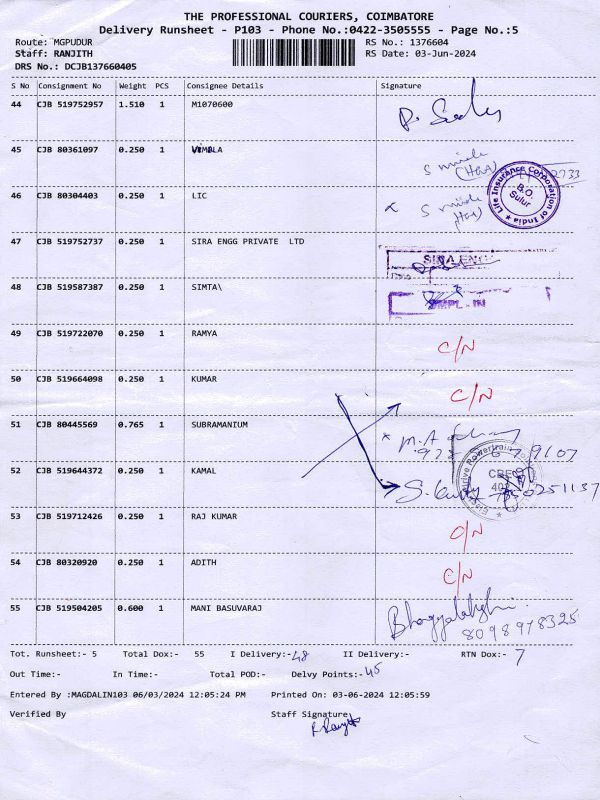 THE PROFESSIONAL COURIERS, COIMBATORE
Delivery Runsheet - P103 - Phone No.:0422-3505555 - Page No.:5
Route: MGPUDUR RS No.: 1376604
Staff: RANJITH RS Date: 03-Jun-2024
DRS No.: DCJB137660405
S No Consignment No Weight PCS Consignee Details Signature
44 CJB 519752957 1.510 1 M1070600
45 CJB 80361097 0.250 1 VIMALA
46 CJB 80304403 0.250 1 LIC
Life Insurance Corporation of India
B.O.
Sulur
47 CJB 519752737 0.250 1 SIRA ENGG PRIVATE LTD SIRA ENG
48 CJB 519587387 0.250 1 SIMTA\
49 CJB 519722070 0.250 1 RAMYA C/N
50 CJB 519664098 0.250 1 KUMAR C/N
51 CJB 80445569 0.765 1 SUBRAMANIUM
52 CJB 519644372 0.250 1 KAMAL
53 CJB 519712426 0.250 1 RAJ KUMAR C/N
54 CJB 80320920 0.250 1 ADITH C/N
55 CJB 519504205 0.600 1 MANI BASUVARAJ
8098978325
Tot. Runsheet:- 5 Total Dox:- 55 I Delivery:- 48 II Delivery:- RTN Dox:- 7
Out Time:- In Time:- Total POD:- Delvy Points:- 45
Entered By :MAGDALIN103 06/03/2024 12:05:24 PM Printed On: 03-06-2024 12:05:59
Verified By Staff Signature